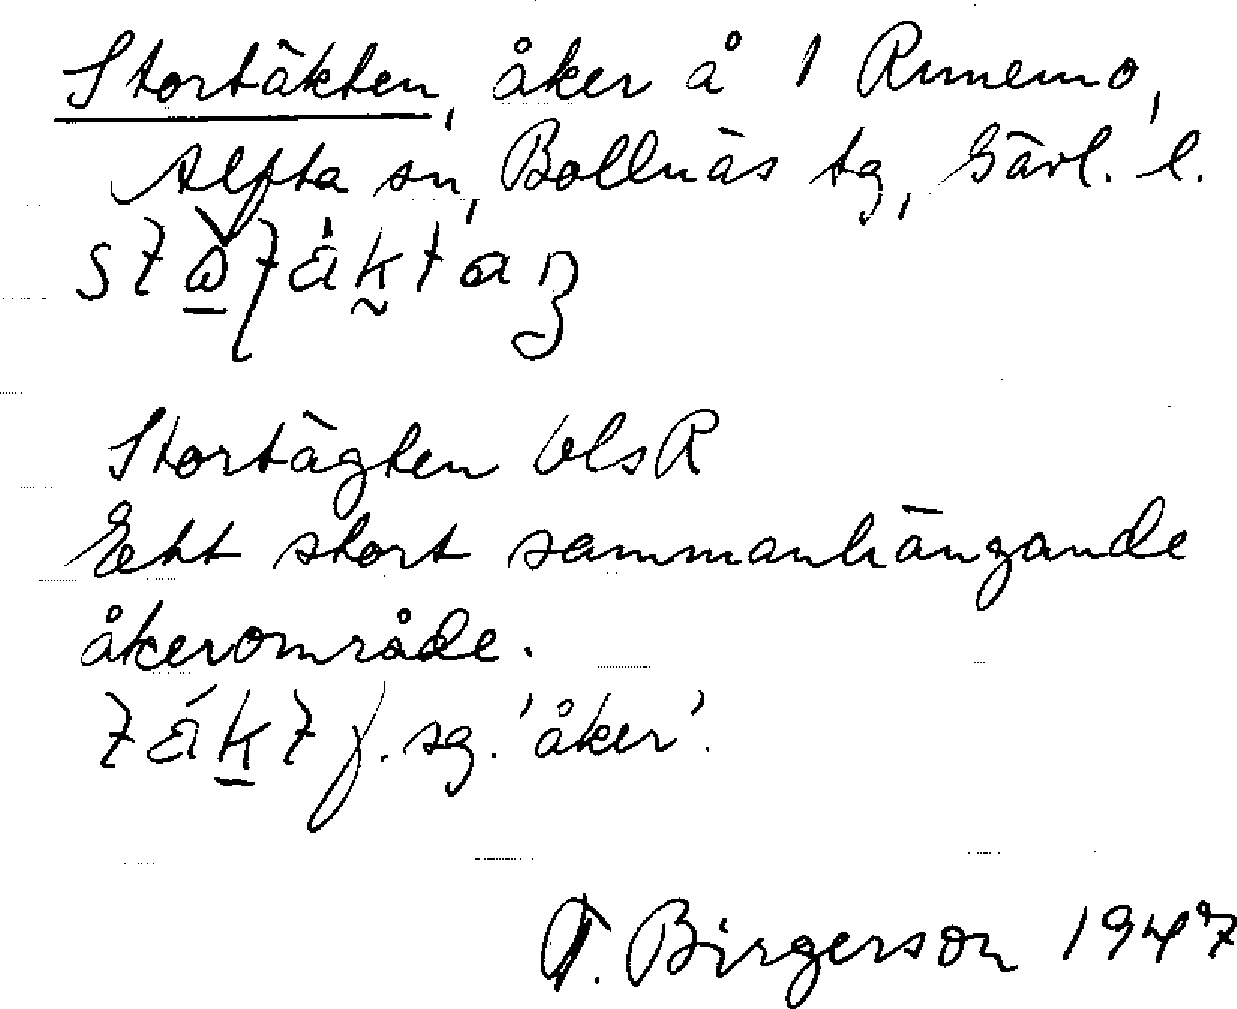 Stortäkten, åker å 1 Runemo,
Alfta sn, Bollnäs tg, Gävl. l.
Stortägten OlsR
Ett stort sammanhängande
åkerområde.
f. sg. 'åker'.
T. Birgerson 1947